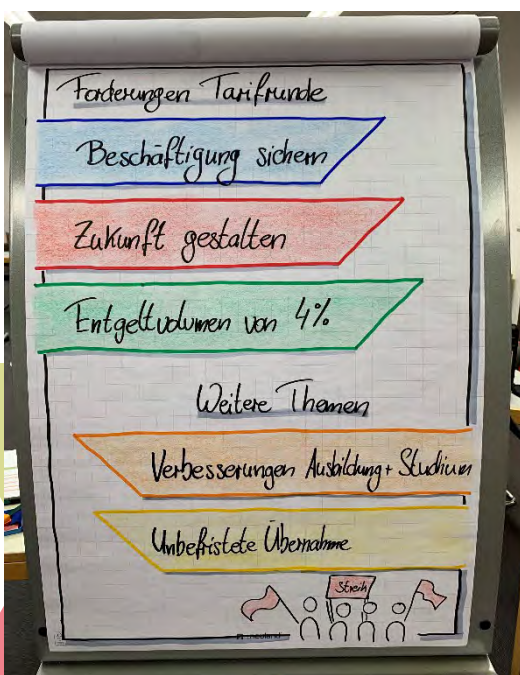 Forderungen Tarifrunde
Beschäftigung sichern
Zukunft gestalten
Entgeltvolumen von 4%
Weitere Themen
Verbesserungen Ausbildung + Studium
Unbefristete Übernahme
Streik
neuland